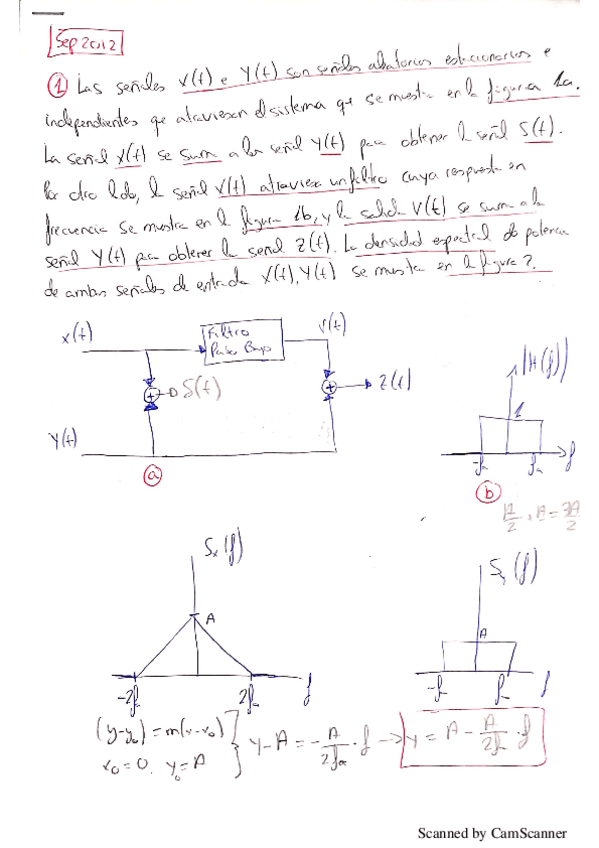 Sep 2012
① Las señales X(t) e Y(t) son señales aleatorias estacionarias e
independientes que atraviesan el sistema que se muestra en la figura 1a.
La señal X(t) se suma a la señal Y(t) para obtener la señal S(t).
Por otro lado, la señal X(t) atraviesa un filtro cuya respuesta en
frecuencia se muestra en la figura 1b, y la salida V(t) se suma a la
señal Y(t) para obtener la señal Z(t). La densidad espectral de potencia
de ambas señales de entrada X(t), Y(t) se muestra en la figura 2.
X(t)
Filtro
Paso Bajo
V(t)
S(t)
Z(t)
Y(t)
ⓐ
|H(f)|
1
-fm
fm
f
ⓑ
A/2 + A = 3A/2
Sx(f)
A
-2fm
2fm
f
Sy(f)
A
-fm
fm
f
(y-y0) = m(x-x0)
x0=0, y0=A
y-A = -A/2fm · f → y = A - A/2fm · f
Scanned by CamScanner